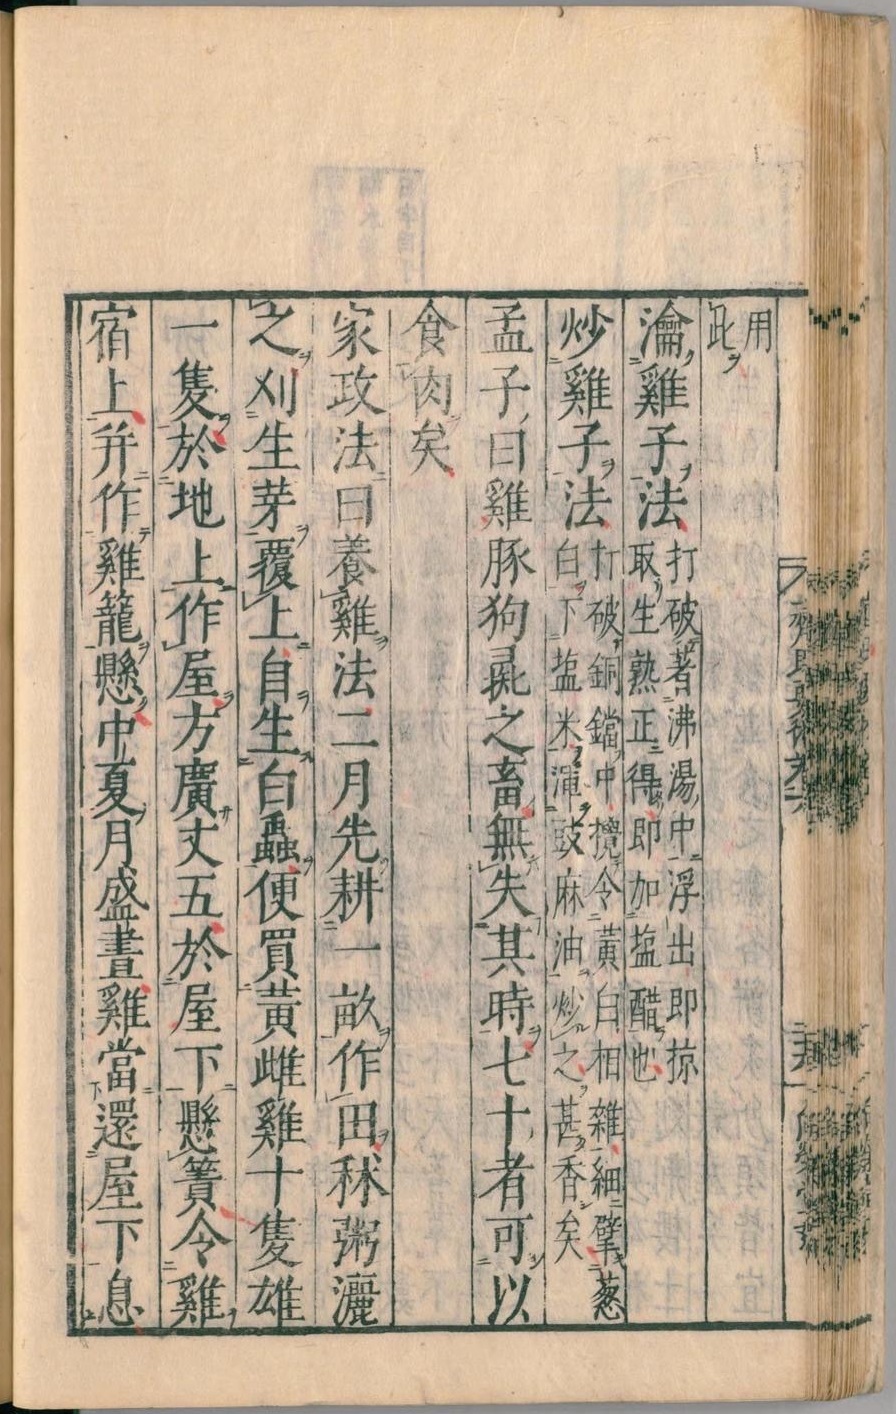 用
此
瀹雞子法
打破著沸湯中浮出即掠
取生熟正得即加塩醋也
炒雞子法
打破銅鐺中攪令黃白相雜細擘葱
白下塩米渾豉麻油炒之甚香矣
孟子曰雞豚狗彘之畜無失其時七十者可以
食肉矣
家政法曰養雞法二月先耕一畝作田秫粥灑
之刈生茅覆上自生白蟲便買黃雌雞十隻雄
一隻於地上作屋方廣丈五於屋下懸簀令雞
宿上并作雞籠懸中夏月盛晝雞當還屋下息